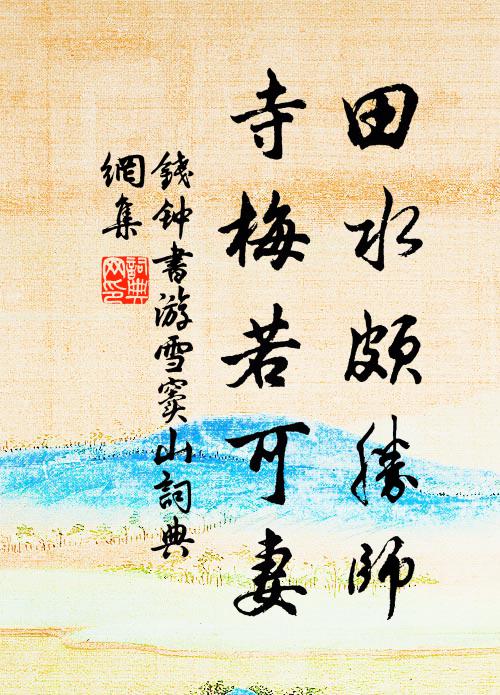 田水頗勝師
寺梅若可妻
錢钟書游雪竇山詞典
網集
詞典
网印